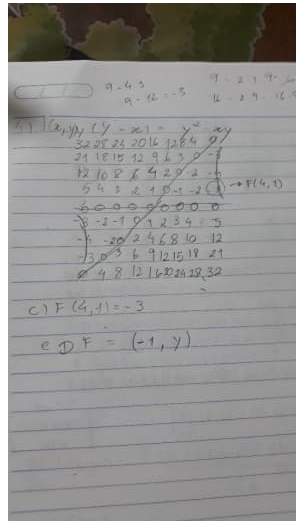 9 - 4.3
9 - 12 = -3
9 - 2 . 1 9 -
16 - 2 9 - 16 -
y (y - x) = y² - xy
32 28 24 20 16 12 8 4 0
21 18 15 12 9 6 3 0 -3
12 10 8 6 4 2 0 -2 -4
5 4 3 2 1 0 -1 -2 → F(4,1)
0 0 0 0 0 0 0 0 0
-3 -2 -1 0 1 2 3 4 5
-4 -2 0 2 4 6 8 10 12
-3 0 3 6 9 12 15 18 21
0 4 8 12 16 20 24 28 32
c) F (4,1) = -3
e D F = (-1, y)